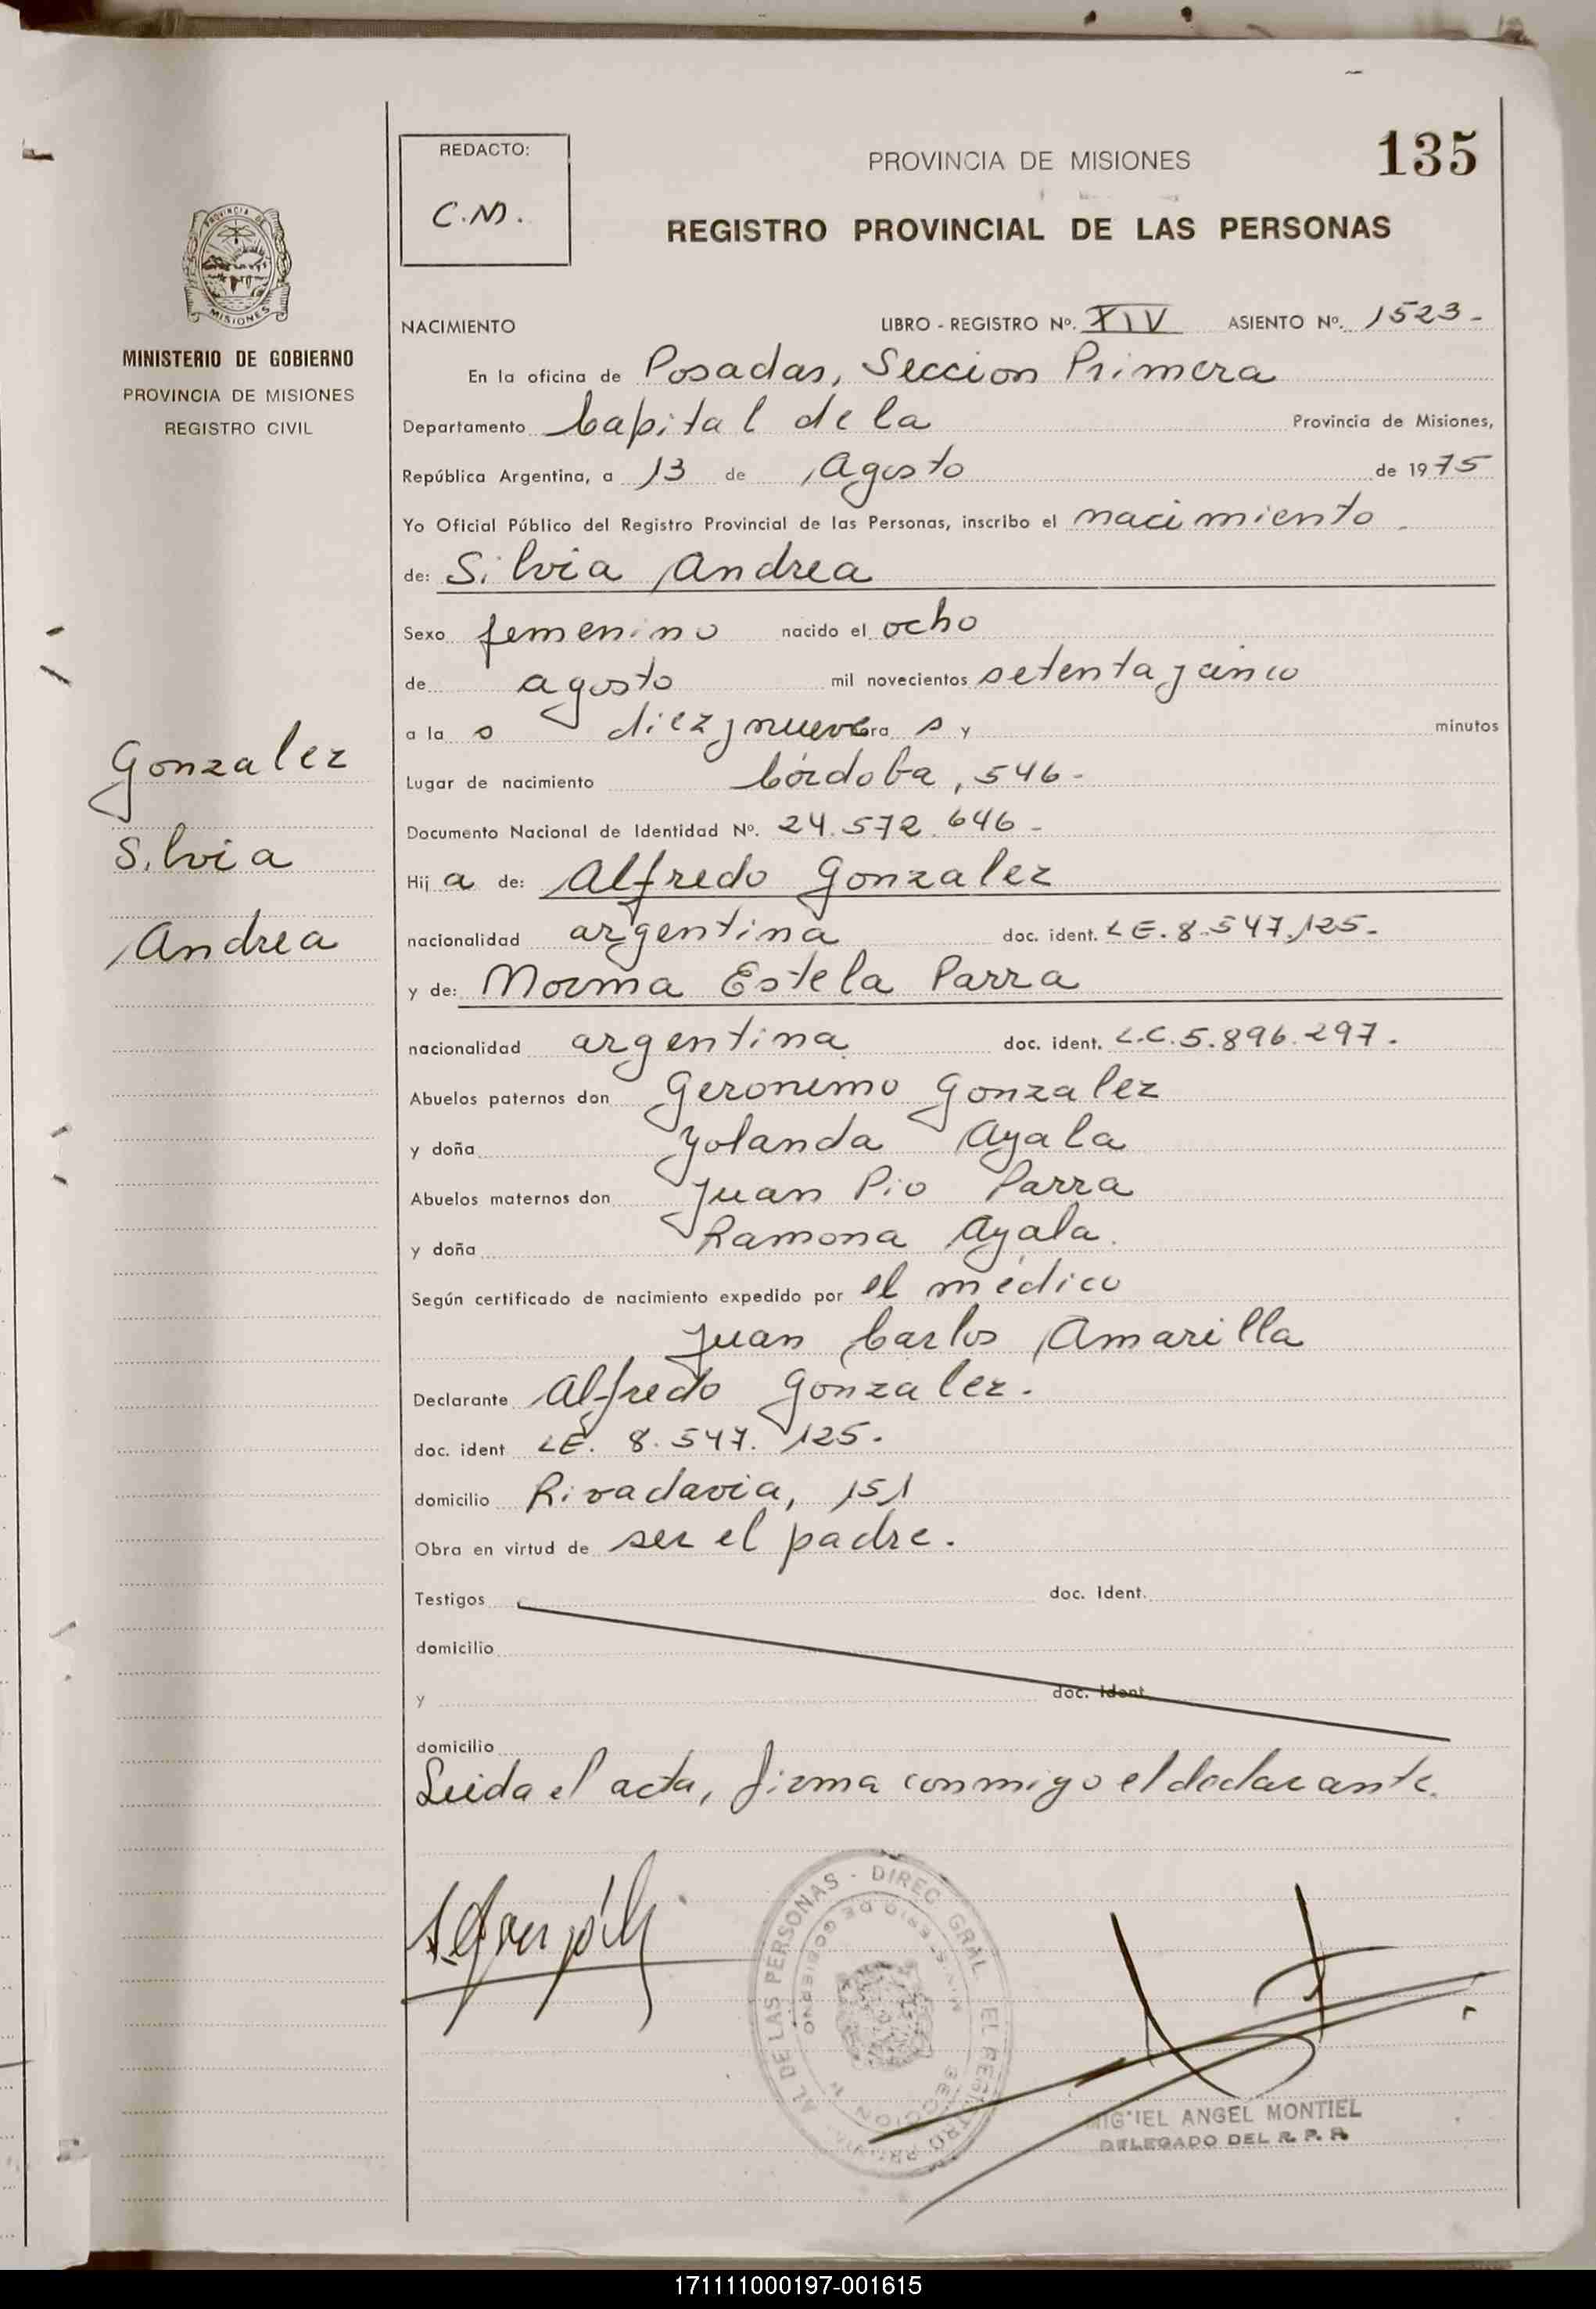 135
REDACTO:
C.M.
PROVINCIA DE MISIONES
REGISTRO PROVINCIAL DE LAS PERSONAS
PROVINCIA DE
MISIONES
MINISTERIO DE GOBIERNO
PROVINCIA DE MISIONES
REGISTRO CIVIL
Gonzalez
Silvia
Andrea
NACIMIENTO LIBRO - REGISTRO Nº. XIV ASIENTO Nº. 1523-
En la oficina de Posadas, Seccion Primera
Departamento Capital de la Provincia de Misiones,
República Argentina, a 13 de Agosto de 1975
Yo Oficial Público del Registro Provincial de las Personas, inscribo el nacimiento
de: Silvia Andrea
Sexo femenino nacido el ocho
de agosto mil novecientos setenta y cinco
a la s diez y nueve ora s y minutos
Lugar de nacimiento Córdoba, 546-
Documento Nacional de Identidad Nº. 24.572.646-
Hij a de: Alfredo Gonzalez
nacionalidad argentina doc. ident. LE. 8.547.125-
y de: Norma Estela Parra
nacionalidad argentina doc. ident. L.C. 5.896.297.
Abuelos paternos don Geronimo Gonzalez
y doña Yolanda Ayala
Abuelos maternos don Juan Pio Parra
y doña Ramona Ayala.
Según certificado de nacimiento expedido por el médico
Juan Carlos Amarilla
Declarante Alfredo Gonzalez.
doc. ident LE. 8.547.125.
domicilio Rivadavia, 151
Obra en virtud de ser el padre.
Testigos doc. Ident.
domicilio
y doc. Ident.
domicilio
Leida el acta, firma conmigo el declarante.
DIREC. GRAL. EL REGISTRO AL DE LAS PERSONAS
MINISTERIO DE GOBIERNO
SECCION 1ª
MIGUEL ANGEL MONTIEL
DELEGADO DEL R. P. P.
171111000197-001615